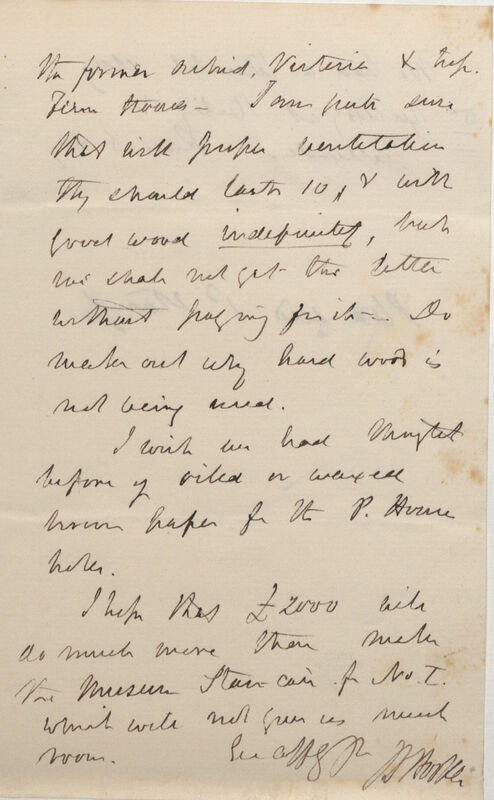 the former orchid, Victoria & trop.
Fern Houses — I am quite sure
that with proper ventilation
they should last 10, & with
good wood indefinitely, but
we shall not get the latter
without paying for it — Do
make out why hard wood is
not being used.
I wish we had thought
before of oiled or waxed
brown paper for the P. House
holes.
I hope that £2000 will
do much more than make
the Museum Stair-case for No. I.
which will not give us much
room.
Ever affly yrs
JD Hooker